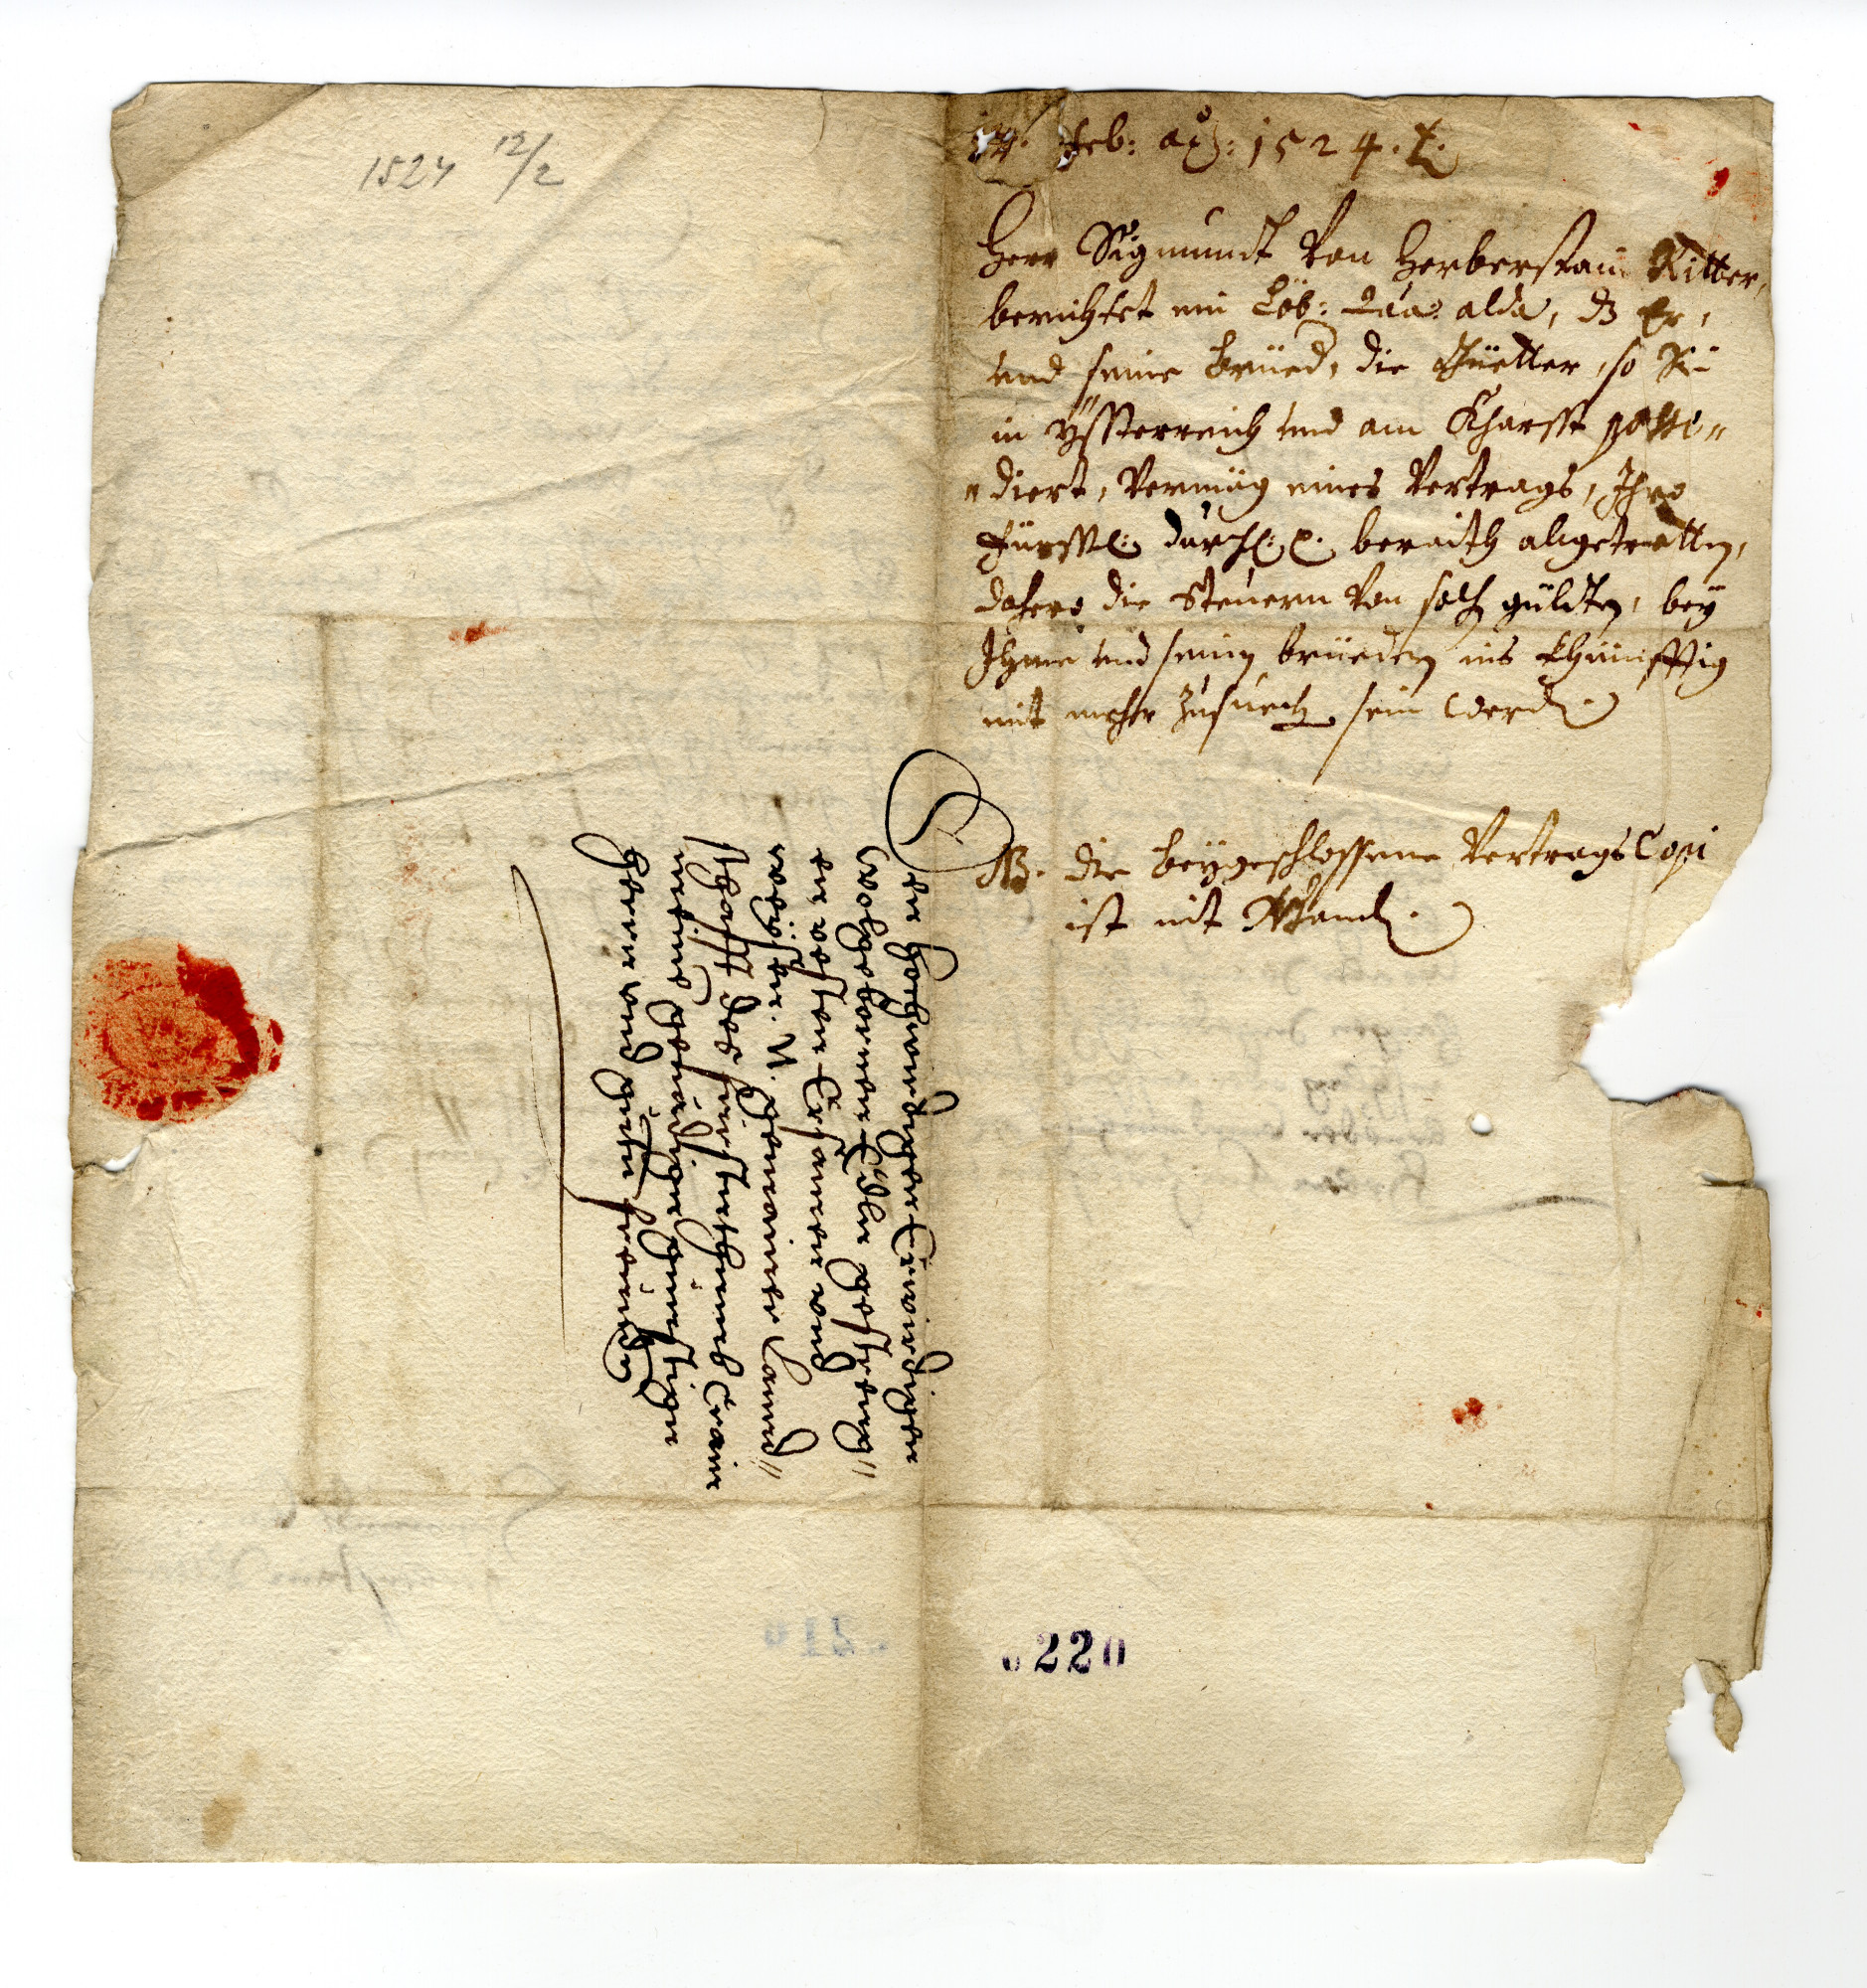 1524 12/2
12. Feb: aõ: 1524. X.
Herr Sigmundt von Herberstain Ritter,
berichtet ein Löb: Laa: alda, dz Er,
und seine brüed, die Güetter, so Sie
in Ysterreich und am Kharsst posse„
„diert, vermög eines Vertrags, Ihro
Fürstl: Durchl: e. beraith abgetretten,
dahero die Steuern von solch güldten, bey
Ihme und seinen brüedern ins khünfftig
nit mehr zusuech sein werd.
NB. die beygeschlossene Vertrags Copi
ist nit verhand.
Den Hochwierdigen Erwierdigen
Wolgebornen Edlen gestreng„
en vessten Ersamen und
weisen. N. gemainer Lannd„
schafft des fürstenthumb Crain
meinen gnedigen günstigen
Herrn und guten freundn
0220